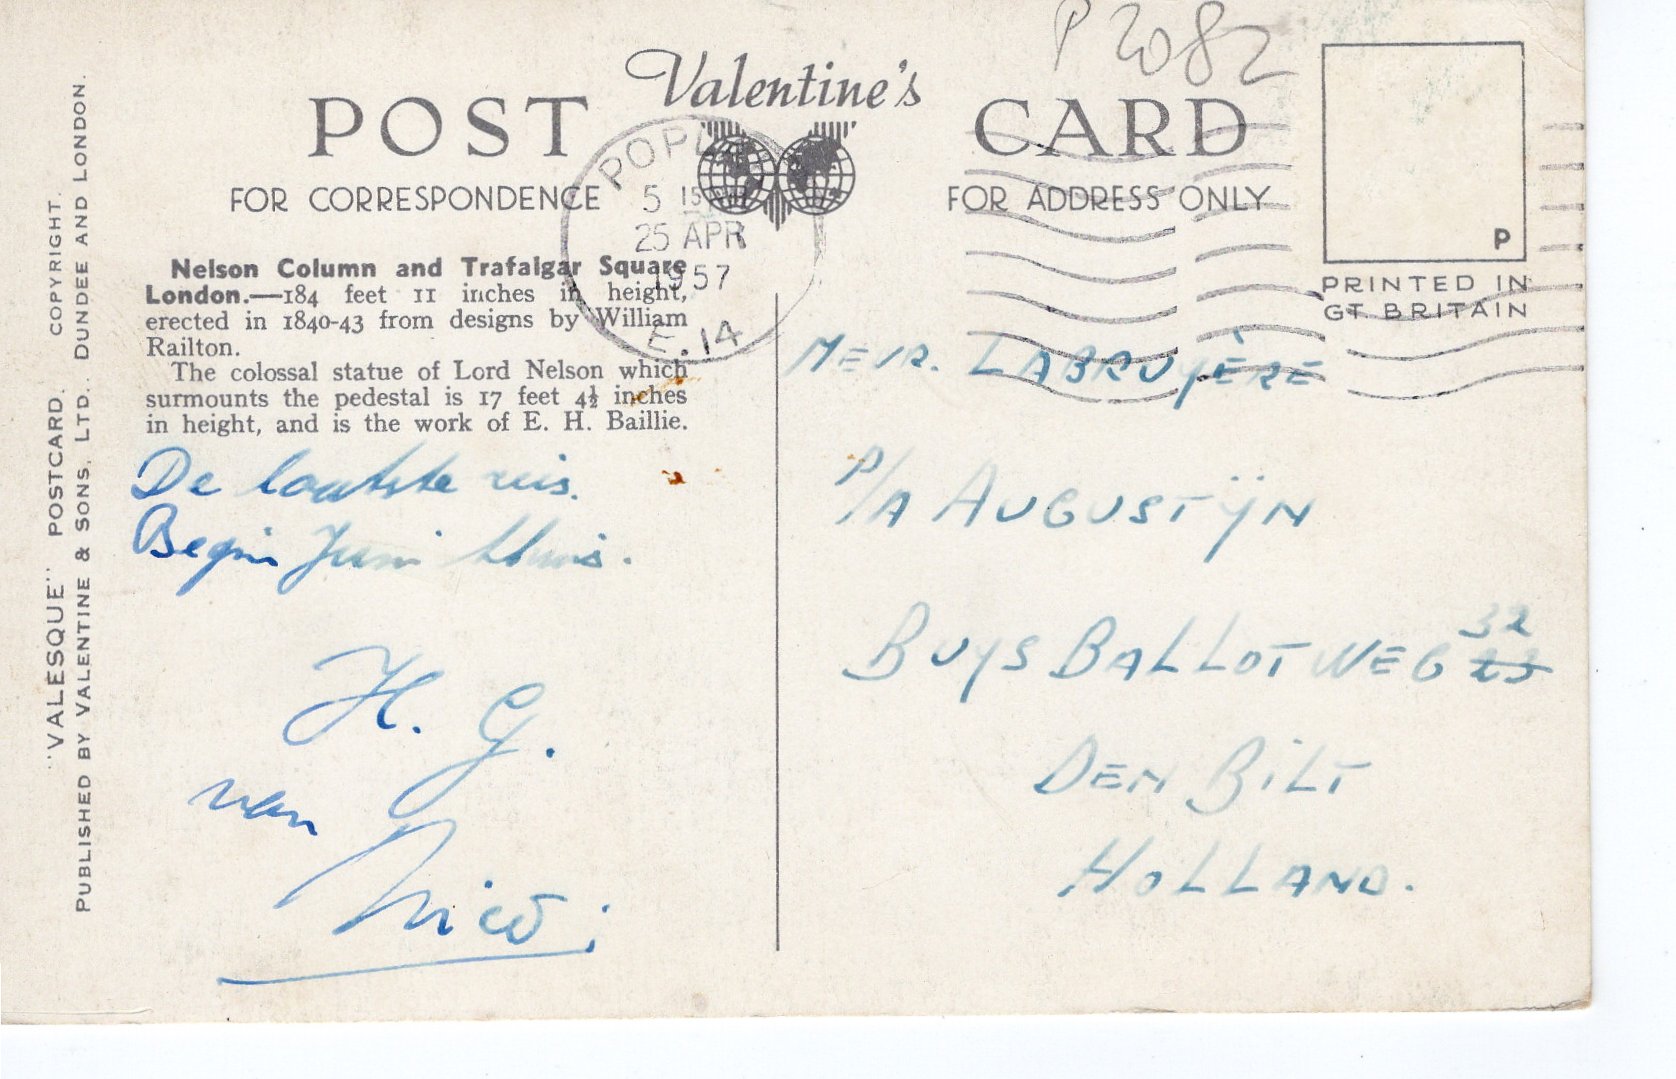 P 2082
Valentine's
POST CARD
FOR CORRESPONDENCE
FOR ADDRESS ONLY
5 15
25 APR
1957
E.14
P
PRINTED IN
GT. BRITAIN
Nelson Column and Trafalgar Square
London.—184 feet 11 inches in height,
erected in 1840-43 from designs by William
Railton.
The colossal statue of Lord Nelson which
surmounts the pedestal is 17 feet 4½ inches
in height, and is the work of E. H. Baillie.
"VALESQUE" POSTCARD. COPYRIGHT.
PUBLISHED BY VALENTINE & SONS, LTD., DUNDEE AND LONDON.
De laatste reis.
Begin Juni thuis.
H. G.
van
Nico
MEJR. LABRUYÈRE
P/A AUGUSTŸN
BUYS BALLOT WEG 32
DEN BILT
HOLLAND.